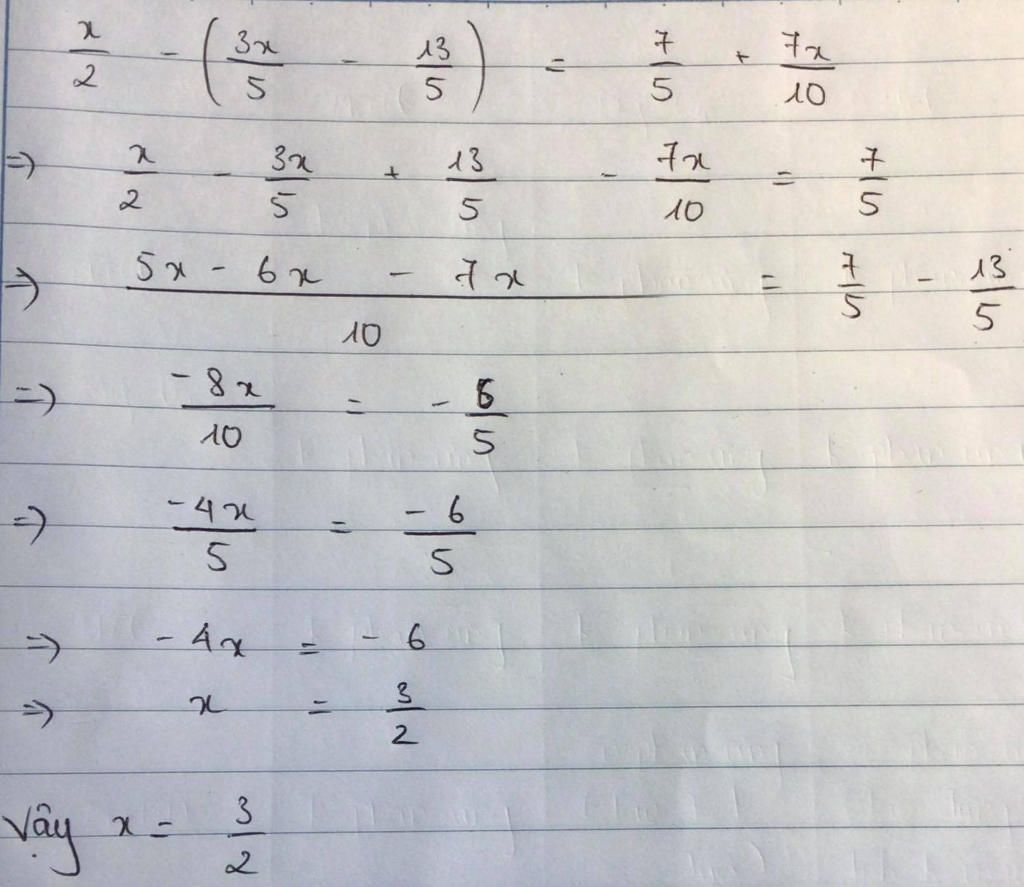 x/2 - (3x/5 - 13/5) = 7/5 + 7x/10
=> x/2 - 3x/5 + 13/5 - 7x/10 = 7/5
=> (5x - 6x - 7x)/10 = 7/5 - 13/5
=> -8x/10 = - 6/5
=> -4x/5 = -6/5
=> - 4x = - 6
=> x = 3/2
Vậy x = 3/2